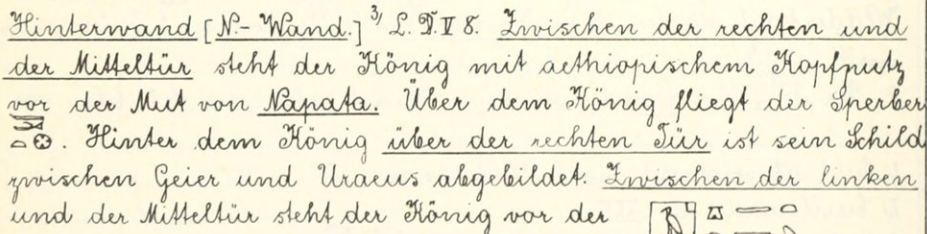 Hinterwand [N.-Wand.] 3/ L. D. V 8. Zwischen der rechten und
der Mitteltür steht der König mit aethiopischem Kopfputz
vor der Mut von Napata. Über dem König fliegt der Sperber
. Hinter dem König über der rechten Tür ist sein Schild
zwischen Geier und Uraeus abgebildet. Zwischen der linken
und der Mitteltür steht der König vor der